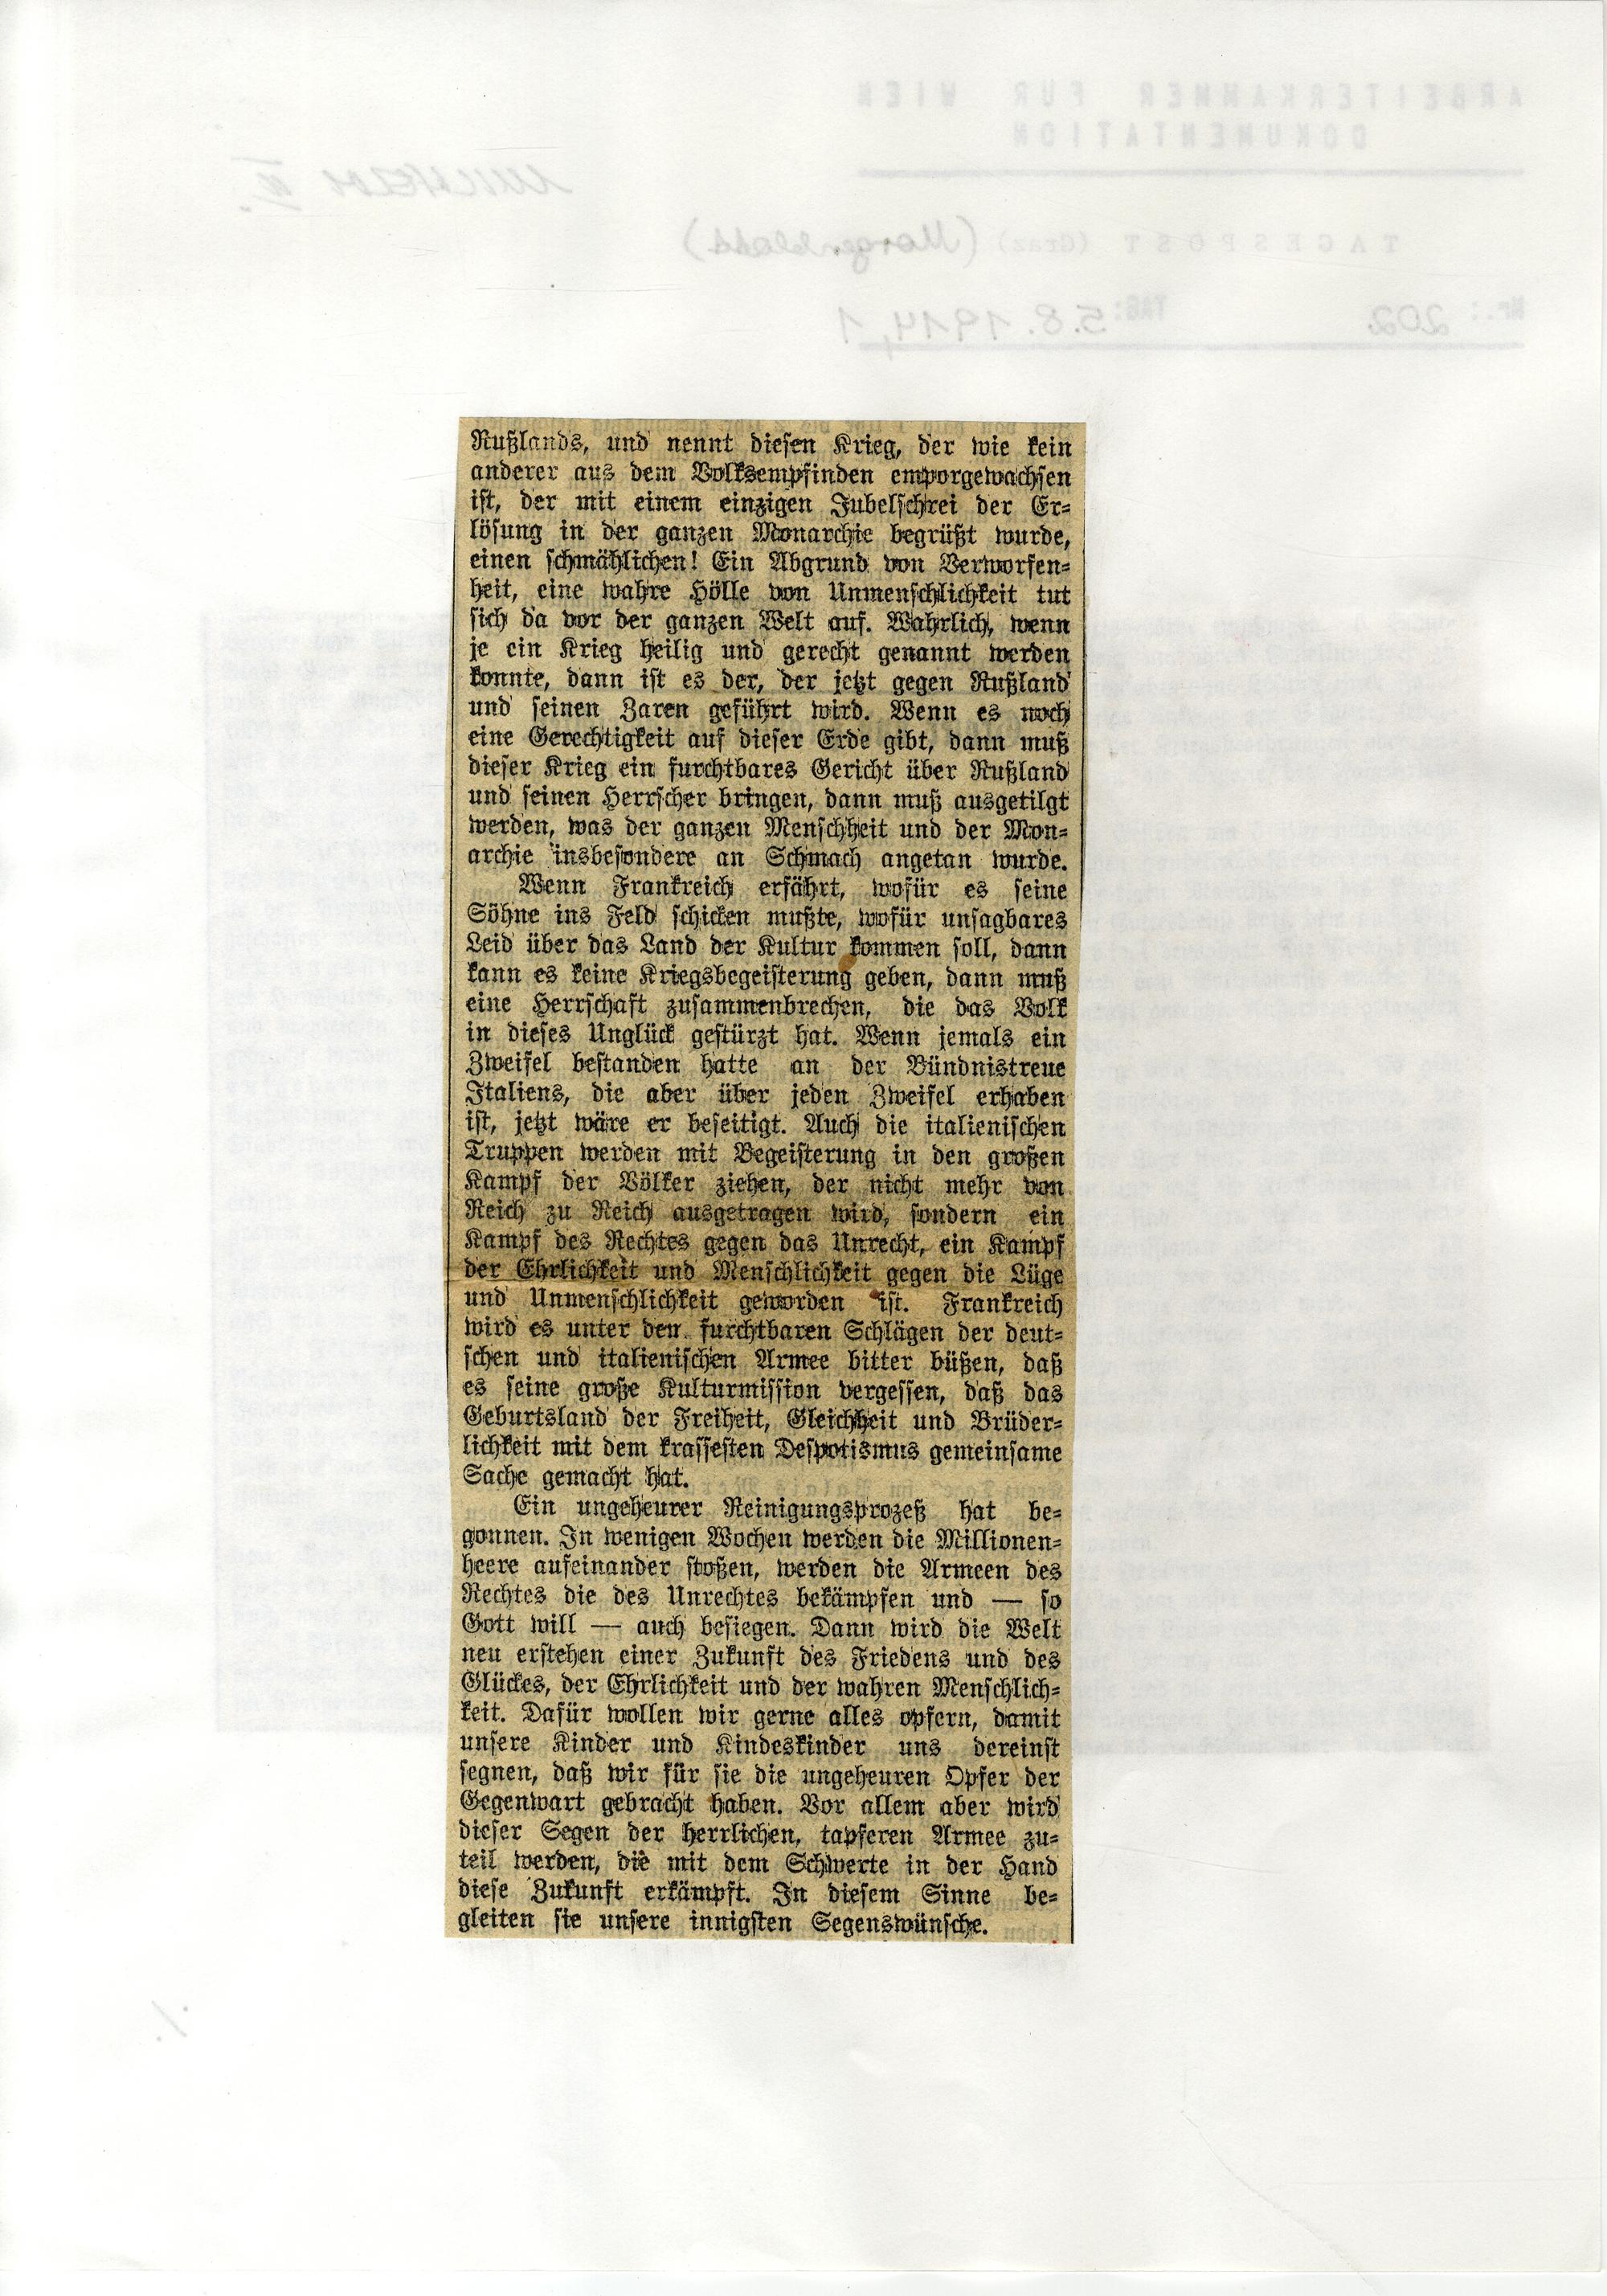 ARBEITERKAMMER FÜR WIEN
DOKUMENTATION
TAGESPOST (Graz) (Morgenblatt)
Nr.: 202 TAG: 5.8.1914, 1
Rußlands, und nennt diesen Krieg, der wie kein
anderer aus dem Volksempfinden emporgewachsen
ist, der mit einem einzigen Jubelschrei der Er-
lösung in der ganzen Monarchie begrüßt wurde,
einen schmählichen! Ein Abgrund von Verworfen-
heit, eine wahre Hölle von Unmenschlichkeit tut
sich da vor der ganzen Welt auf. Wahrlich, wenn
je ein Krieg heilig und gerecht genannt werden
konnte, dann ist es der, der jetzt gegen Rußland
und seinen Zaren geführt wird. Wenn es noch
eine Gerechtigkeit auf dieser Erde gibt, dann muß
dieser Krieg ein furchtbares Gericht über Rußland
und seinen Herrscher bringen, dann muß ausgetilgt
werden, was der ganzen Menschheit und der Mon-
archie insbesondere an Schmach angetan wurde.
Wenn Frankreich erfährt, wofür es seine
Söhne ins Feld schicken mußte, wofür unsagbares
Leid über das Land der Kultur kommen soll, dann
kann es keine Kriegsbegeisterung geben, dann muß
eine Herrschaft zusammenbrechen, die das Volk
in dieses Unglück gestürzt hat. Wenn jemals ein
Zweifel bestanden hatte an der Bündnistreue
Italiens, die aber über jeden Zweifel erhaben
ist, jetzt wäre er beseitigt. Auch die italienischen
Truppen werden mit Begeisterung in den großen
Kampf der Völker ziehen, der nicht mehr von
Reich zu Reich ausgetragen wird, sondern ein
Kampf des Rechtes gegen das Unrecht, ein Kampf
der Ehrlichkeit und Menschlichkeit gegen die Lüge
und Unmenschlichkeit geworden ist. Frankreich
wird es unter den furchtbaren Schlägen der deut-
schen und italienischen Armee bitter büßen, daß
es seine große Kulturmission vergessen, daß das
Geburtsland der Freiheit, Gleichheit und Brüder-
lichkeit mit dem krassesten Despotismus gemeinsame
Sache gemacht hat.
Ein ungeheurer Reinigungsprozeß hat be-
gonnen. In wenigen Wochen werden die Millionen-
heere aufeinander stoßen, werden die Armeen des
Rechtes die des Unrechtes bekämpfen und — so
Gott will — auch besiegen. Dann wird die Welt
neu erstehen einer Zukunft des Friedens und des
Glückes, der Ehrlichkeit und der wahren Menschlich-
keit. Dafür wollen wir gerne alles opfern, damit
unsere Kinder und Kindeskinder uns dereinst
segnen, daß wir für sie die ungeheuren Opfer der
Gegenwart gebracht haben. Vor allem aber wird
dieser Segen der herrlichen, tapferen Armee zu-
teil werden, die mit dem Schwerte in der Hand
diese Zukunft erkämpft. In diesem Sinne be-
gleiten sie unsere innigsten Segenswünsche.